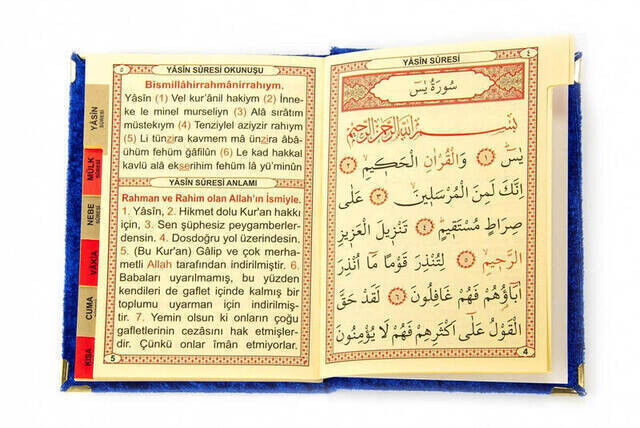 YÂSÎN SÛRESİ OKUNUŞU
Bismillâhirrahmânirrahıym.
Yâsîn (1) Vel kur'ânil hakiym (2) İnne-
ke le minel murseliyn (3) Alâ sırâtım
müstekıym (4) Tenziylel aziyzir rahıym
(5) Li tünzira kavmem mâ ünzira âbâ-
ühüm fehüm ğâfilûn (6) Le kad hakkal
kavlü alâ ekserihim fehüm lâ yü'minûn
YÂSÎN SÛRESİ ANLAMI
Rahman ve Rahim olan Allah'ın İsmiyle.
1. Yâsîn, 2. Hikmet dolu Kur'an hakkı
için, 3. Sen şüphesiz peygamberler-
densin. 4. Dosdoğru yol üzerindesin.
5. (Bu Kur'an) Gâlip ve çok merha-
metli Allah tarafından indirilmiştir. 6.
Babaları uyarılmamış, bu yüzden
kendileri de gaflet içinde kalmış bir
toplumu uyarman için indirilmiş-
tir. 7. Yemin olsun ki onların çoğu
gafletlerinin cezasını hak etmişler-
dir. Çünkü onlar îmân etmiyorlar.
5
YÂSİN
SÛRESİ
MÜLK
SÛRESİ
NEBE
SÛRESİ
VÂKIA
CUMA
KISA
YÂSİN SÛRESİ
٤
سُورَةُ يٰسٓ
بِسْمِ اللّٰهِ الرَّحْمٰنِ الرَّحِيمِ
يٰسٓ ﴿١﴾ وَالْقُرْاٰنِ الْحَكِيمِ ﴿٢﴾
اِنَّكَ لَمِنَ الْمُرْسَلِينَ ﴿٣﴾ عَلٰى
صِرَاطٍ مُسْتَقِيمٍ ﴿٤﴾ تَنْزِيلَ الْعَزِيزِ
الرَّحِيمِ ﴿٥﴾ لِتُنْذِرَ قَوْمًا مَٓا اُنْذِرَ
اٰبَٓاؤُ۬هُمْ فَهُمْ غَافِلُونَ ﴿٦﴾ لَقَدْ حَقَّ
الْقَوْلُ عَلٰٓى اَكْثَرِهِمْ فَهُمْ لَا يُؤْمِنُونَ
4